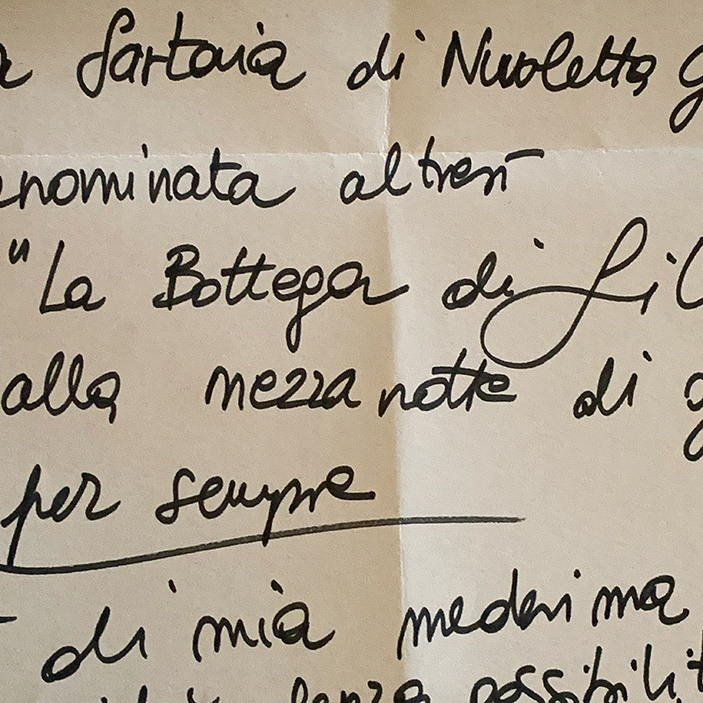 Sartoria di Nuvoletta
nominata altresì
"La Bottega di Lil
alla mezzanotte di
per sempre
di mia medesima
senza possibilit